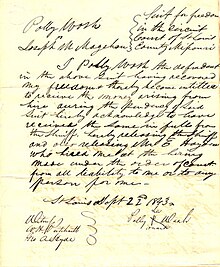 Polly Wash
Suit for freedom
in the Circuit
Joseph M Magehan
Court of St Louis
County Missouri
I Polly Wash the defendant
in the above Suit having recovered
my freedom thereby become entitled
to receive the money arising from
hire during the pendency of said
Suit hereby acknowledge to have
received the same in full from
the Sheriff hereby releasing the Sheriff
and also releasing
who hired me at the hiring
made under the order of Court
from all liability to me or to any
person for me
St Louis Sept 1843
her
Polly X Wash
mark
Witness